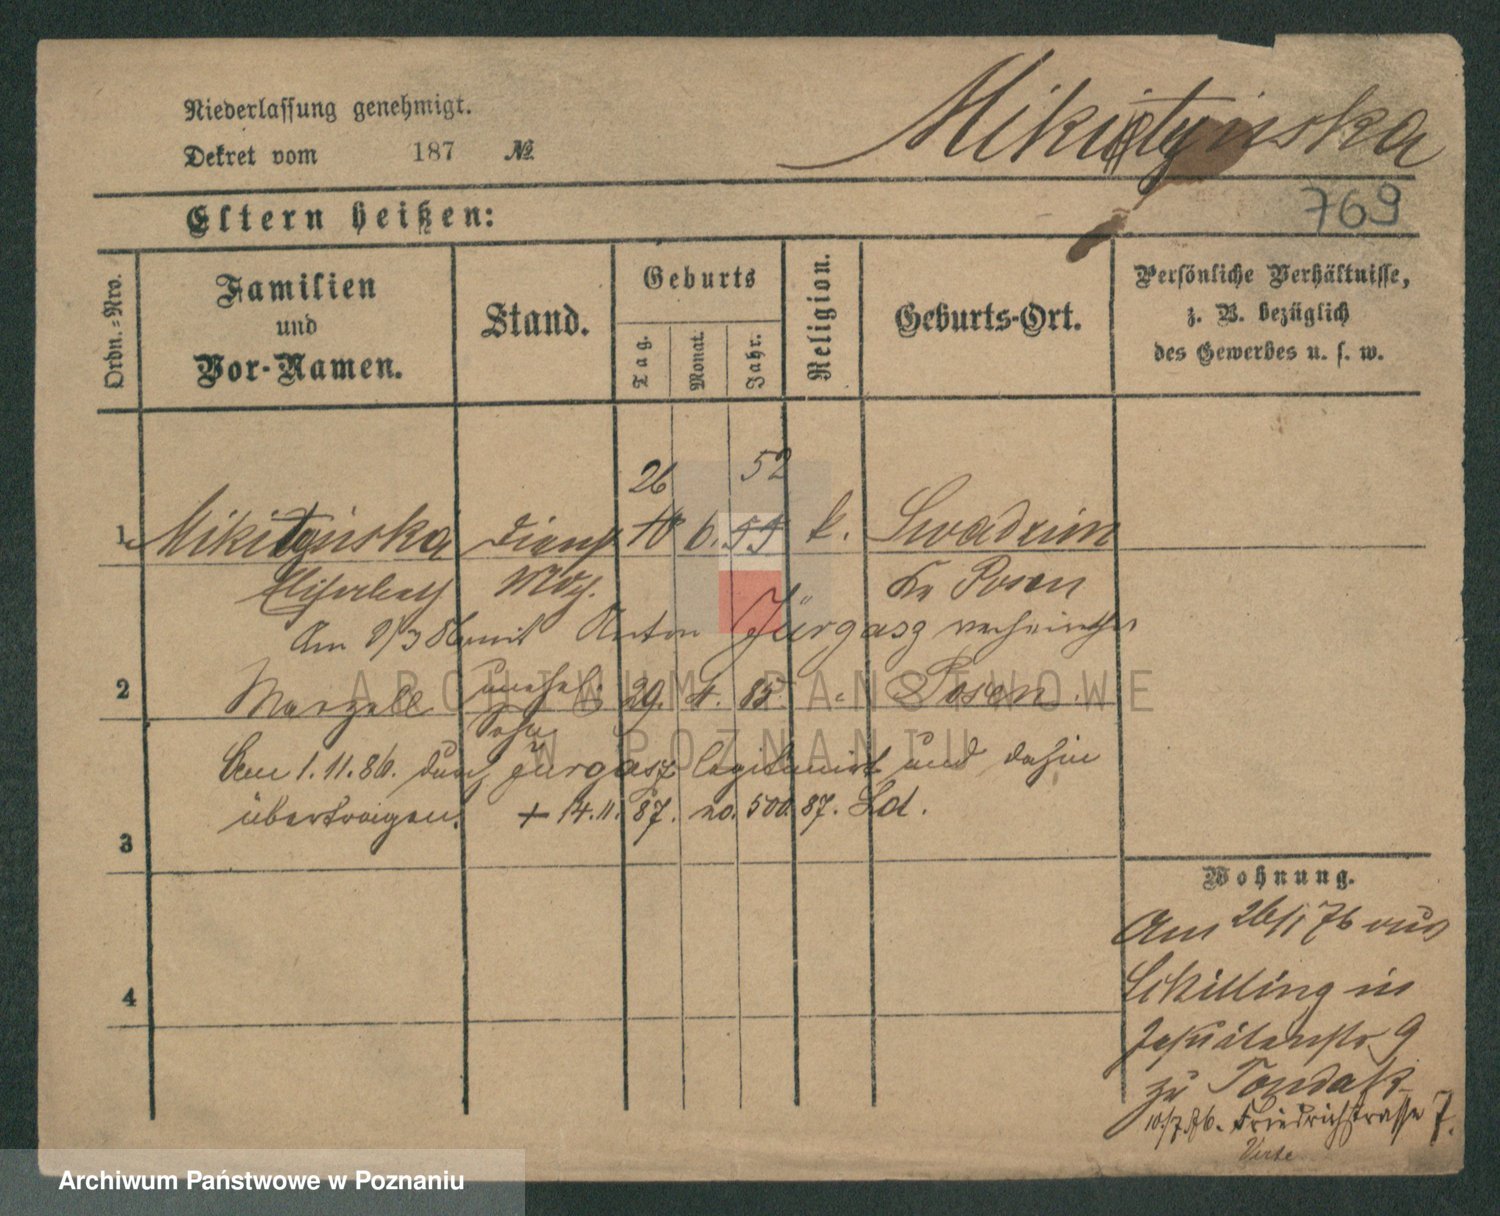 Niederlassung genehmigt.
Dekret vom 187 №
Mikitynska
769
Eltern heißen:
Ordn.-Nro.
Familien
und
Vor-Namen.
Stand.
Geburts
Tag.
Monat.
Jahr.
Religion.
Geburts-Ort.
Persönliche Verhältnisse,
z. B. bezüglich
des Gewerbes u. s. w.
26 52
1 Mikitynska Dienst 10 6. 55 k. Swadzim
Elisabeth Mdch. Kr Posen
Am 9/3 86 mit Anton Jürgasz verheirathet
2 Marzell unehel. 29. 4. 85 " Posen.
Sohn
Am 1.11.86. durch Jurgasz legitimirt und dahin
übertragen. + 14.11.87. no. 500.87. Sd.
3
4
Wohnung.
Am 26/1 76 aus
Schilling in
Jesuitenstr. 9
zu Tondak
10./7.86. Friedrichstrasse 7.
Verte
ARCHIWUM PAŃSTWOWE
W POZNANIU
Archiwum Państwowe w Poznaniu